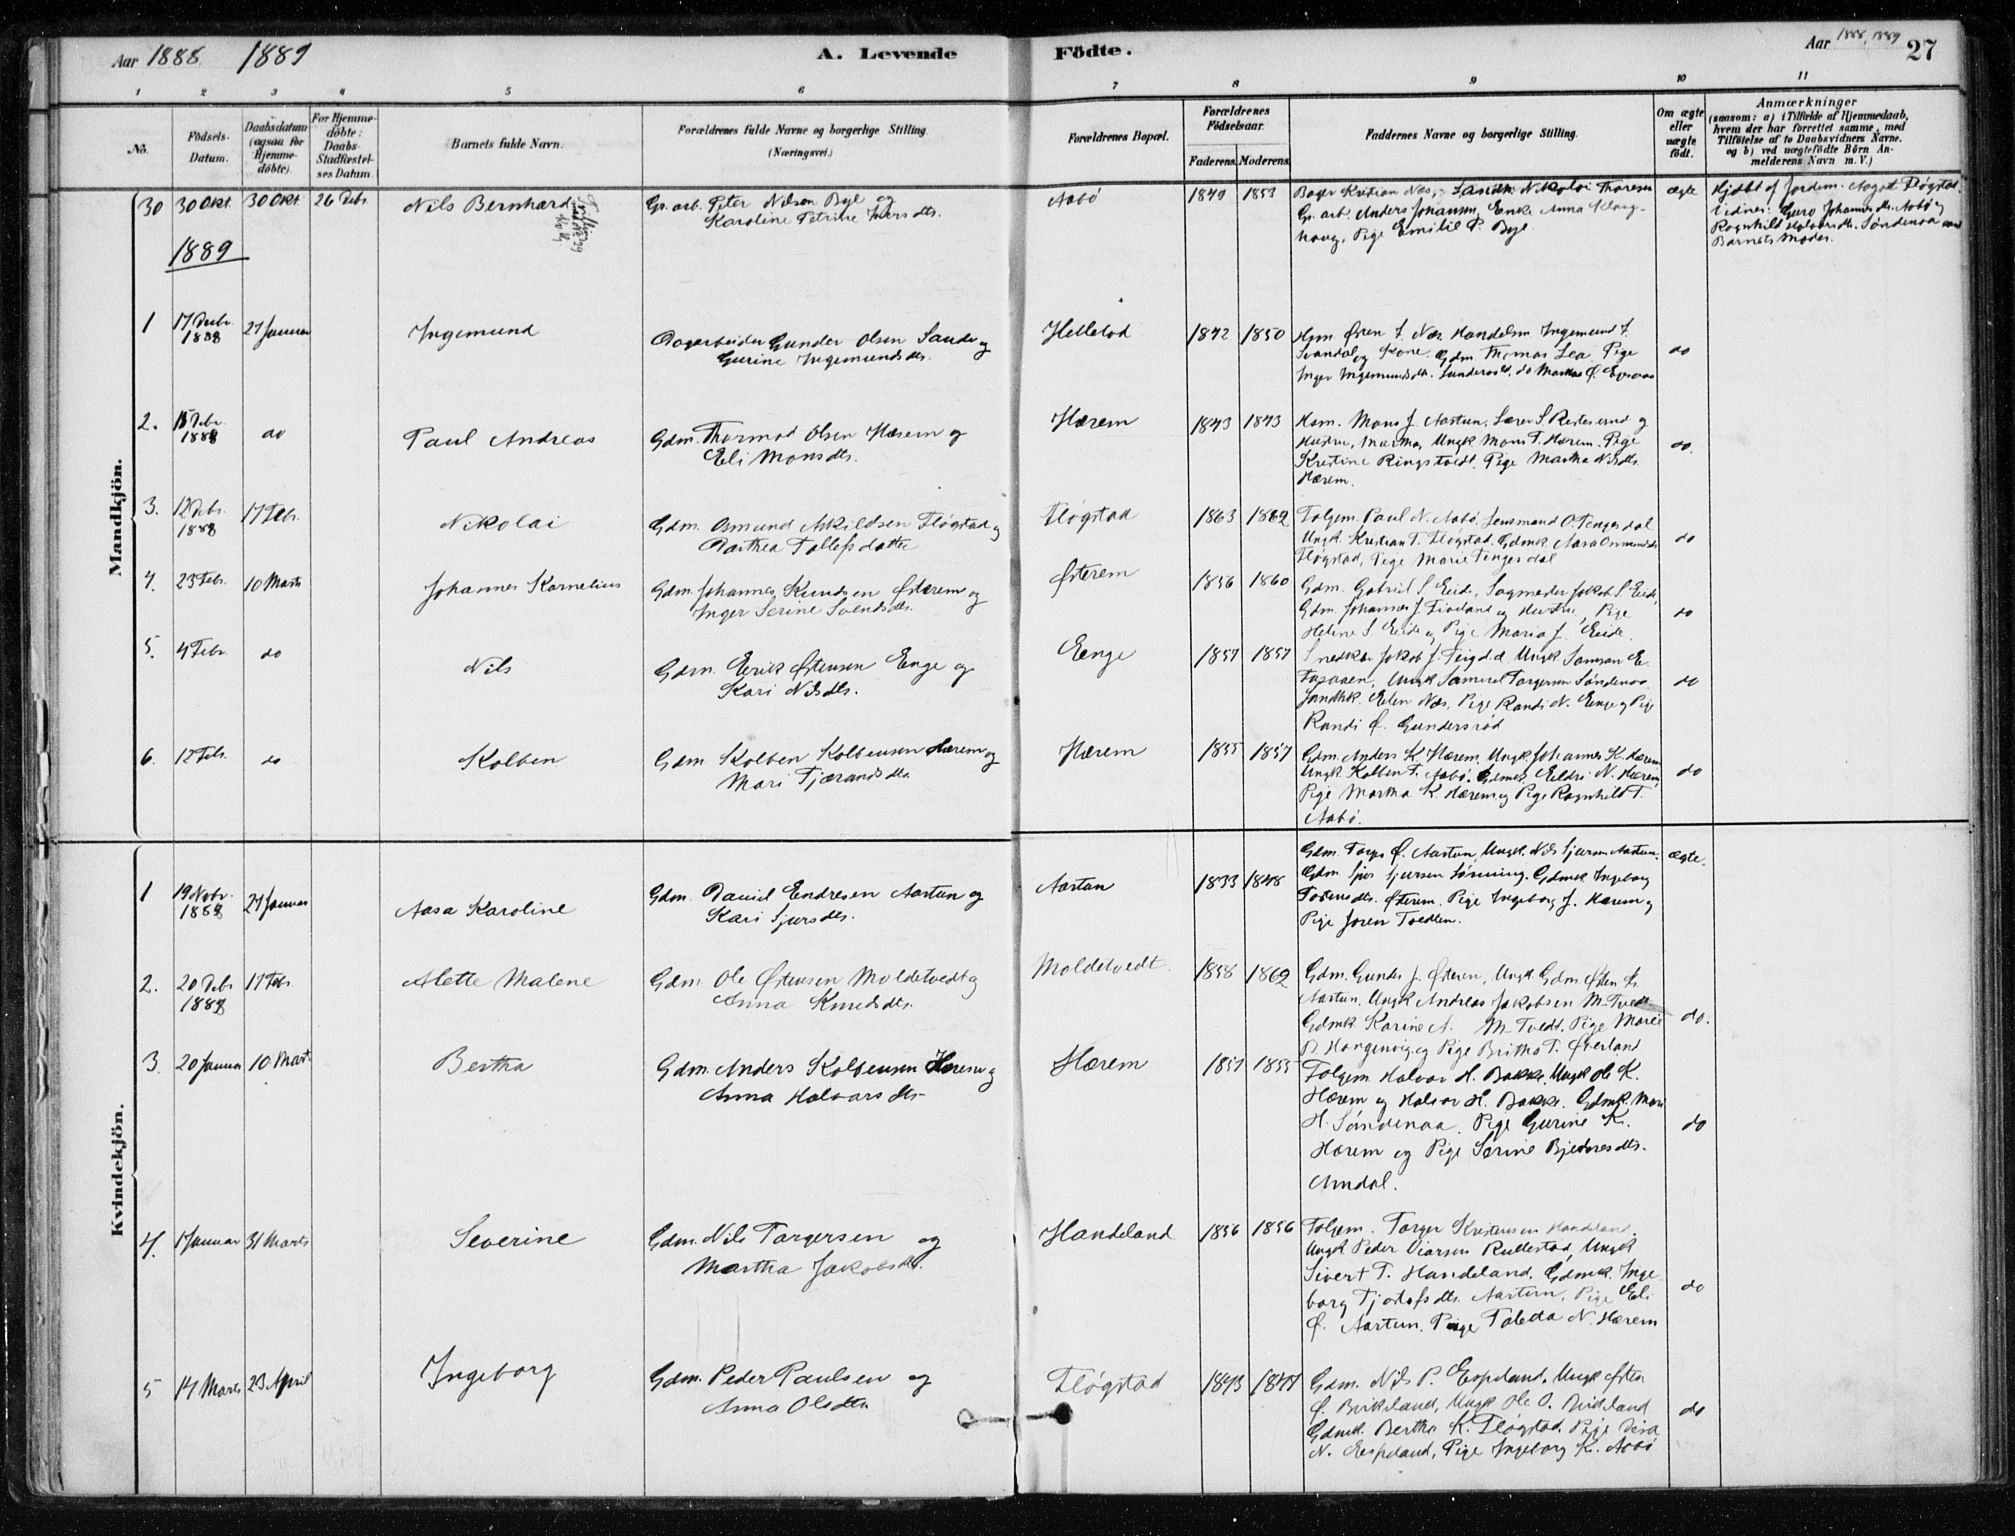 Aar 1888 1889 A. Levende Födte. Aar 1888, 1889 27
1 2 3 4 5 6 7 8 9 10 11
No.
Födsels-
Datum.
Daabsdatum
(ogsaa for
Hjemme-
döbte).
For Hjemme-
döbte:
Daabs-
Stadfæstel-
ses Datum
Barnets fulde Navn.
Forældrenes fulde Navne og borgerlige Stilling
(Næringsvei.)
Forældrenes Bopæl.
Forældrenes
Födselsaar.
Faderens. Moderens.
Faddernes Navne og borgerlige Stilling.
Om ægte
eller
uægte
födt.
Anmærkninger
(saasom: a) i Tilfælde af Hjemmedaab,
hvem der har forrettet samme, med
Tilföielse af to Daabsvidners Navne.
og b) ved uægtefödte Börn An-
melderens Navn m. V.)
Mandkjön.
30 30 Okt. 30 Okt. 26 Debr. Nils Bernhard
Gr. arb. Peter Nilsen Bye og
Karoline Petrine
Aabö 1849 1853
Bager Kristian Næs, Nikolai Thoresen
Gr. arb. Anders Johansen, Enke Anna
Pige Emilie P. Bye.
ægte
Hjdbt af Jordem. Aagot Fløgstad.
Vidner: Guro Johannesdtr. Aabø og
Ragnhild Halvorsdtr. Søndenaa samt
Barnets Moder.
1889
1 17 Decbr. 1888 27 Januar Ingemund
Dagarbeider Gunder Olsen Sande og
Gurine Ingemundsdtr.
Hellelod 1842 1850
Hsm. Østen T. Næs, Handelsm Ingemund T.
Svandal og Kone, Gdm. Thomas Lea, Pige
Inger Ingemundsdtr.
do
2. 15 Debr. 1888 do Paul Andreas
Gdm. Thormod Olsen Hærem og
Eli Monsdtr.
Hærem 1843 1843
Hsm. Mons J. Aartun, Lærer S. og
Hustru, Martha, Ungk. Mons T. Hærem, Pige
Kristine Ringstvedt, Pige Martha Nilsdtr.
Hærem.
do.
3. 12 Debr. 1888 17 Febr. Nikolai
Gdm. Osmund Askildsen Fløgstad og
Barthea Tollefsdatter
Fløgstad 1863 1862
Folgem. Paul N. Aabø, Lensmand O. Tengesdal
Ungk. Kristian T. Fløgstad, Gdmk. Aasa Osmundsdtr
Fløgstad, Pige Marie Tengesdal
do
4. 23 Febr. 10 Marts Johannes Kornelius
Gdm. Johannes Knudsen Østerem og
Inger Serine Svendsdtr.
Østerem 1856 1860
Gdm. Gabriel S. Eide, Sagmester Jakob S. Eide,
Gdm. Johannes J. og Hustru, Pige
Helene S. Eide og Pige Maria J. Eide.
do
5. 4 Febr. do Nils
Gdm. Eerik Østensen Eenge og
Kari Nilsdtr.
Eenge 1857 1857
Snedker Jakob J. Ungk. Samson E.
Ungk. Samuel Torgersen Søndenaa,
Elen Næs, Pige Randi N. Eenge og Pige
Randi Ø. Gundersrød
do
6. 12 Febr. do Kolben
Gdm. Kolben Kolbensen Hærem og
Mari Tjærandsdtr.
Hærem 1855 1857
Gdm. Anders K. Hærem, Ungk. Johannes K. Hærem
Ungk. Kolben T. Aabø, Gdmk. Eldri N. Hærem,
Pige Martha K. Hærem og Pige Ragnhild T.
Aabø.
do
Kvindekjön.
1 19 Novbr. 1888 27 Januar Aasa Karoline
Gdm. Daniel Endresen Aartun og
Kari Sjursdtr.
Aartun 1833 1848
Gdm. Torger Ø. Aartun, Ungk. Nils Sjursen Aartun,
Gdm. Sjur Sjursen Gdmk. Ingeborg
Østerem, Pige Ingeborg J. Hærem og
Pige Joren Tvedten.
ægte.
2. 20 Debr. 1888 17 Febr. Alette Malene
Gdm. Ole Østensen Moldetvedt og
Anna Knudsdtr.
Moldetvedt. 1858 1862
Gdm. Gunder J. Østerem, Ungk. Gdm. Østen Ø.
Aartun, Ungk. Andreas Jakobsen M-Tvedt
Gdmk. Karine A. M-Tvedt, Pige Marie
og Pige Britha T. Østerland
do.
3. 20 Januar 10 Mart. Bertha
Gdm. Anders Kolbensen Hærem og
Anna Halvorsdtr.
Hærem 1857 1855
Folgem. Halvor H. Bakke, Ungk. Ole K.
Hærem og Halvor H. Bakke, Gdmk. Mari
H. Søndenaa, Pige Gurine K.
Hærem og Pige Serine
Amdal.
do
4. 1 Januar 31 Marts Severine
Gdm. Nils Torgersen og
Martha Jakobsdtr.
Handeland 1856 1856
Folgem. Torger Kristensen Handeland,
Ungk. Peder Rullestad, Ungk.
Sivert T. Handeland, Gdmk. Inge
borg Aartun, Pige Eli
Ø. Aartun, Pige N. Hærem
do
5 14 Marts 23 April Ingeborg
Gdm. Peder Paulsen og
Anna Olsdtr.
Fløgstad 1843 1847
Gdm. Nils P. Espeland, Ungk. Østen
Ø. Birkeland, Ungk. Ole O. Birkeland
Gdmk. Bertha K. Fløgstad, Pige
N. Eespeland, Pige Ingeborg K. Aabø
do